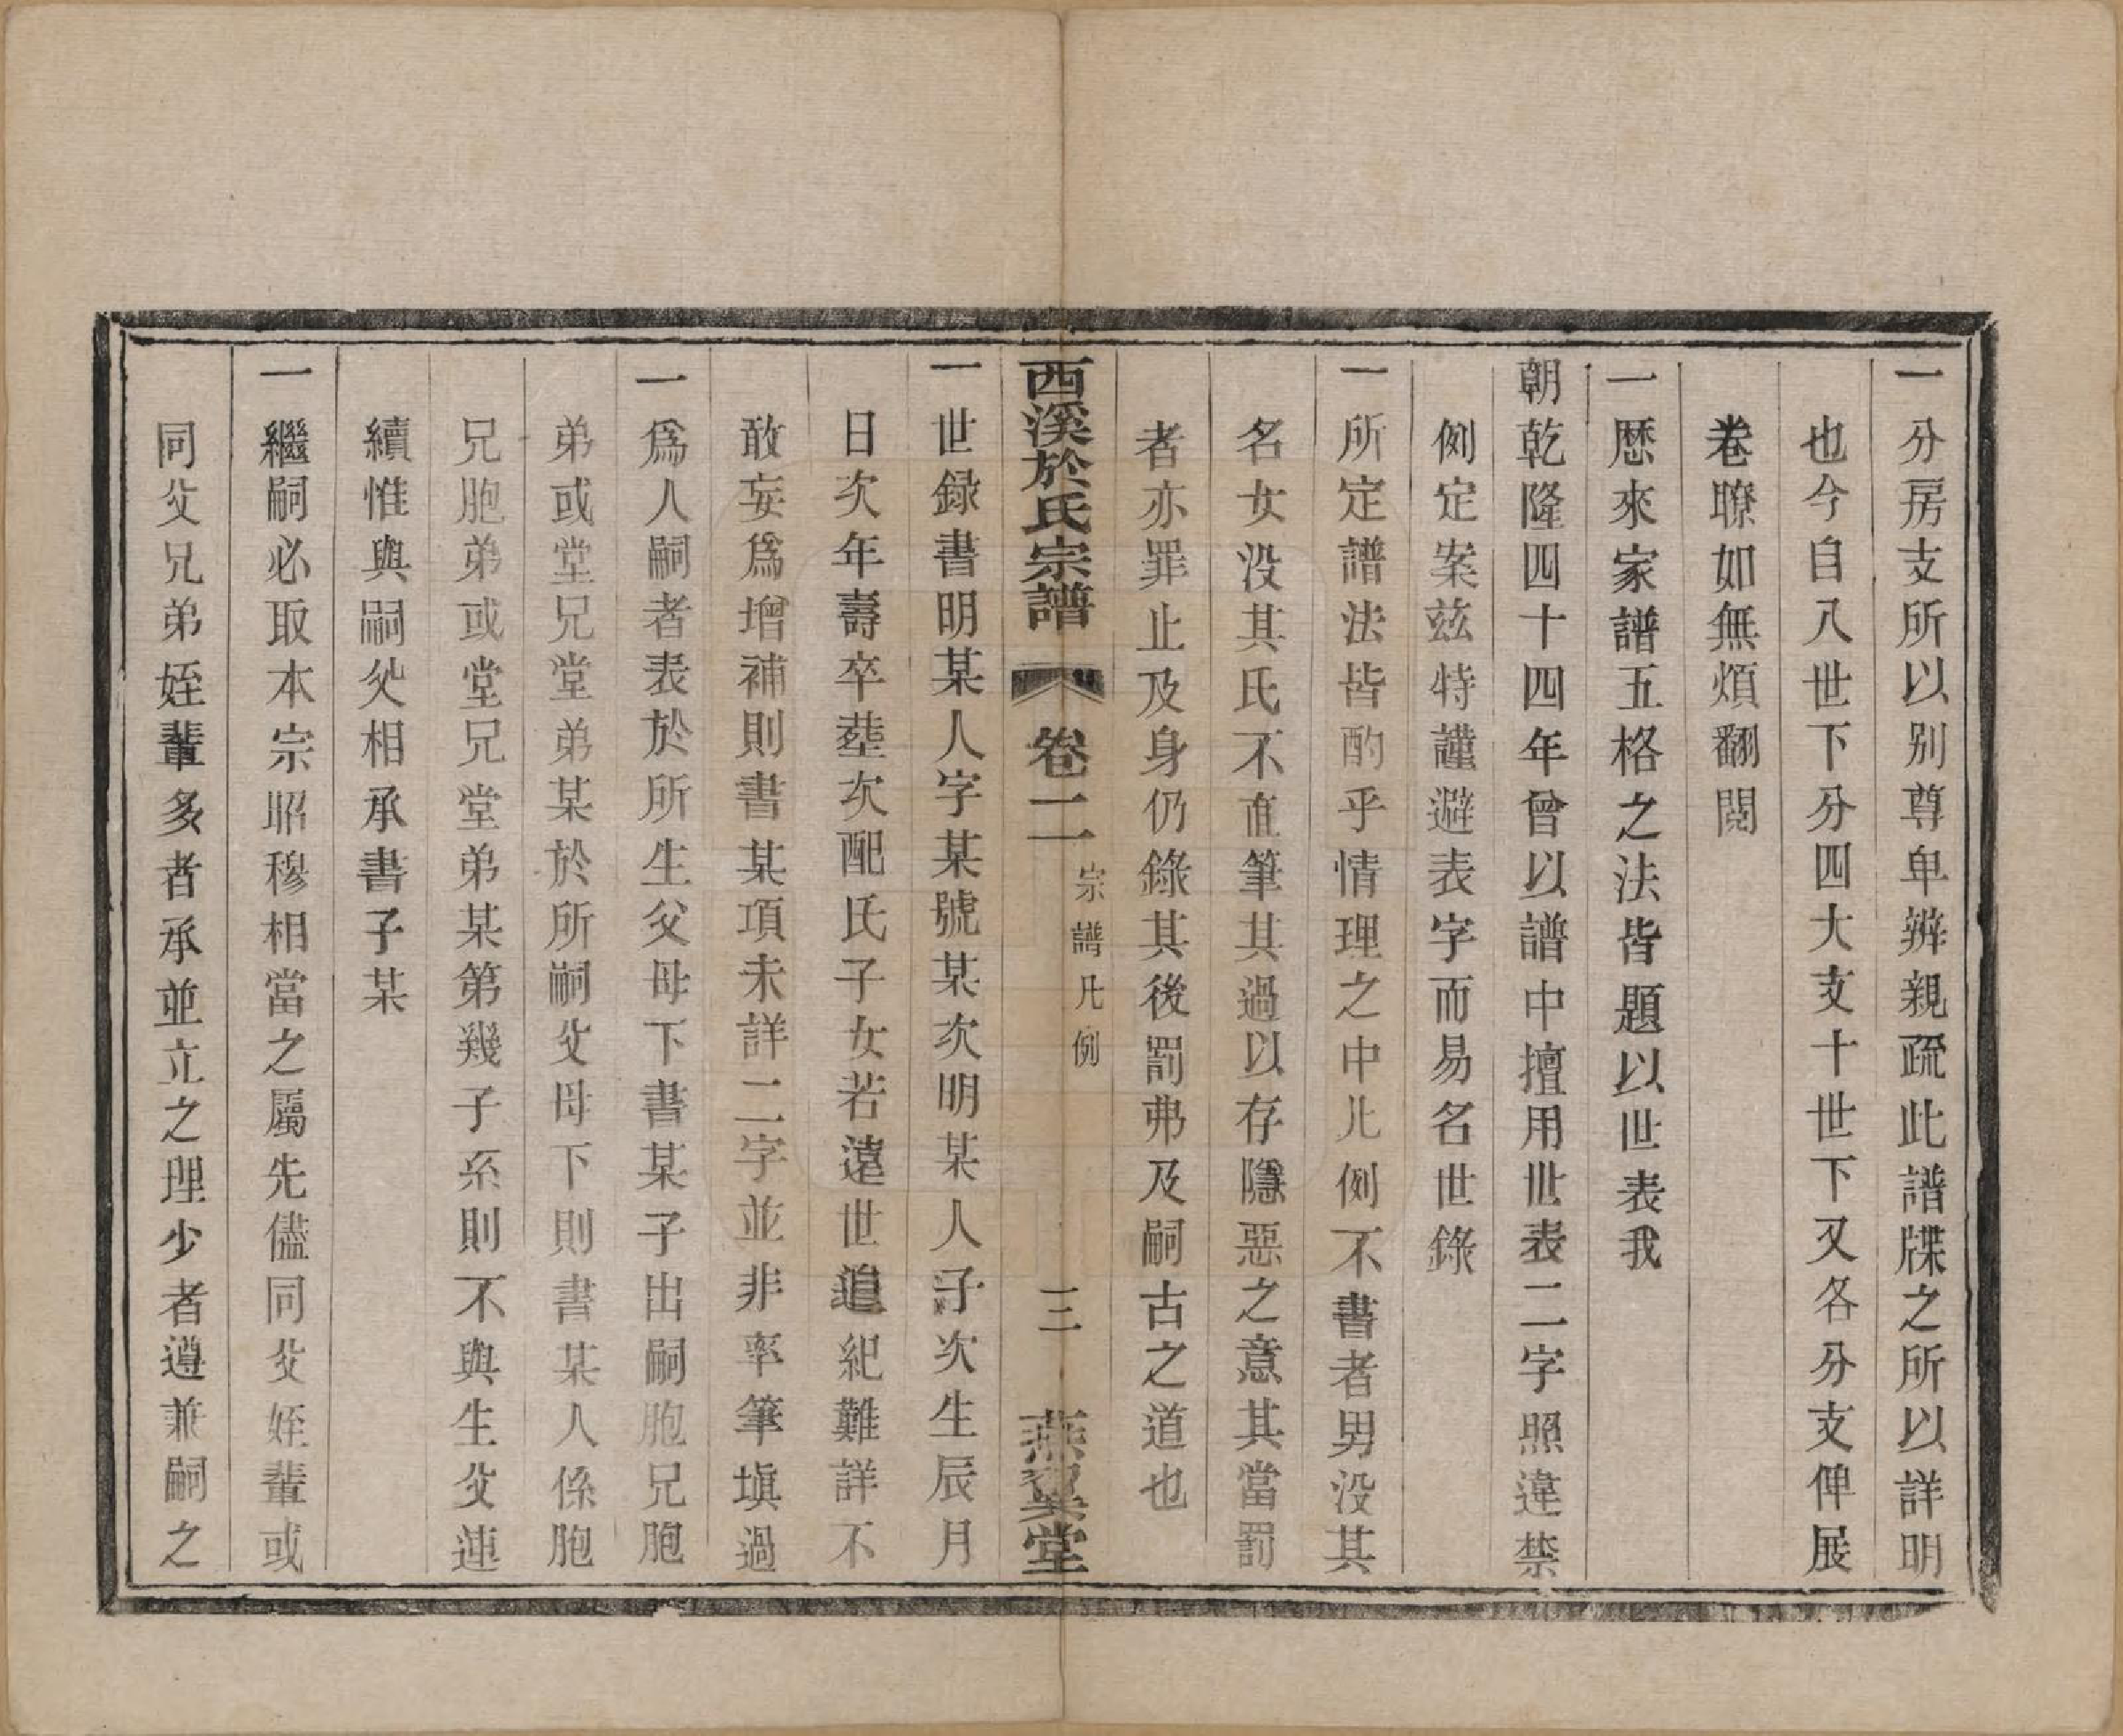 一分房支所以別尊卑辨親疏此譜牒之所以詳明
也今自八世下分四大支十世下又各分支俾展
卷瞭如無煩翻閱
一歷來家譜五格之法皆題以世表我
朝乾隆四十四年曾以譜中擅用世表二字照違禁
例定案茲特謹避表字而易名世錄
一所定譜法皆酌乎情理之中凡例不書者男没其
名女没其氏不直筆其過以存隱惡之意其當罰
者亦罪止及身仍錄其後罰弗及嗣古之道也
西溪於氏宗譜 卷二 宗譜凡例 三 燕翼堂
一世録書明某人字某號某次明某人子次生辰月
日次年壽卒塟次配氏子女若遠世追紀難詳不
敢妄爲增補則書某項未詳二字並非率筆塡過
一爲人嗣者表於所生父母下書某子出嗣胞兄胞
弟或堂兄堂弟某於所嗣父母下則書某人係胞
兄胞弟或堂兄堂弟某第幾子系則不與生父連
續惟與嗣父相承書子某
一繼嗣必取本宗昭穆相當之屬先儘同父姪輩或
同父兄弟姪輩多者承並立之理少者遵兼嗣之